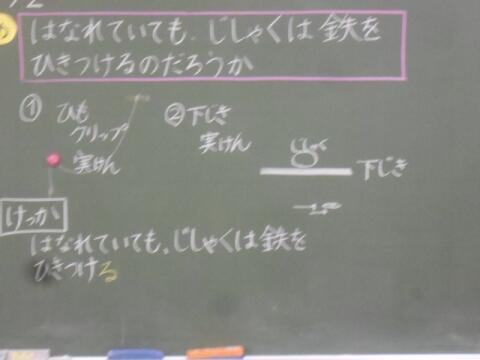 はなれていても、じしゃくは鉄を
ひきつけるのだろうか
① ひも
クリップ
実けん
②下じき
実けん
下じき
けっか
はなれていても、じしゃくは鉄を
ひきつける